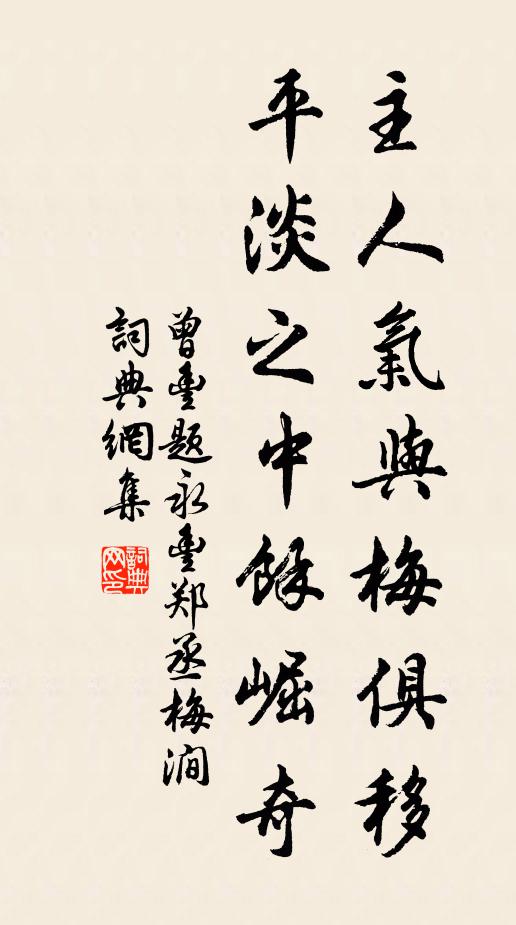 主人氣與梅俱移
平淡之中餘崛奇
曾豊題永豊郑丞梅澗
詞典網集
詞典网印